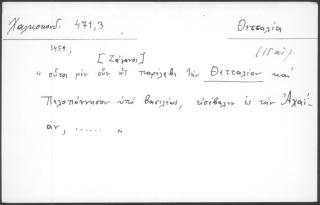 Χαλκοκονδ. 471,3 Θετταλία
1459; (Ἰδαῒ)
[Ζάγανος]
" οὗτος μὲν οὖν ὡς παρέλαβε τὴν Θετταλίαν καὶ
Πελοπόννησον ὑπὸ βασιλέως, εἰσέβαλεν ἐς τὴν Ἀχαΐ-
αν, ...... "